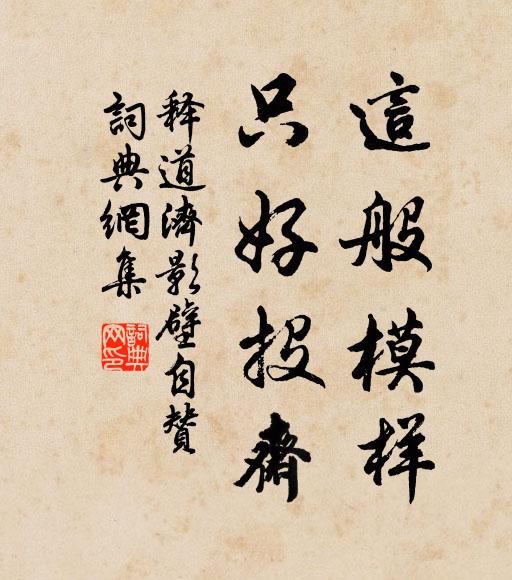 這般模样
只好投齋
释道濟影壁自贊
詞典網集
詞典
网印